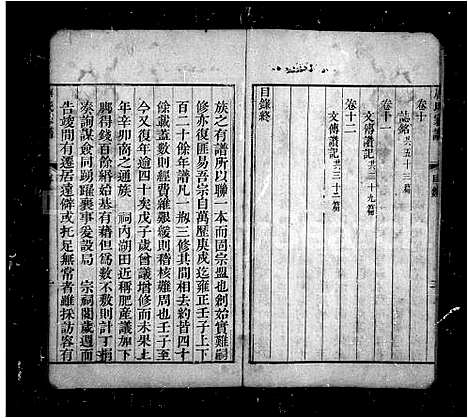 卷十
誌銘共五十三篇
卷十一
文傳譜記共二十九篇
卷十二
文傳譜記共三十二篇
目錄終
族之有譜所以聯一本而固宗盟也創始實難嗣
修亦復匪易吾宗自萬歷庚戌迄雍正壬子上下
百二十餘年譜凡一瓶三修其間相去約皆四十
餘歲蓋數則維艱緩則稽核難周也壬子至
今又復年逾四十矣戊子歲曾議增修而未果
年辛卯商之通族 祠內湖田近稱肥產議加下
腳得錢百餘緡始基有藉但為數不敷則計丁捐
湊詢謀僉同踴躍襄事爰設局 宗祠閱歲週而
告竣間有遷居遠僻或托足無常者雖採訪容有